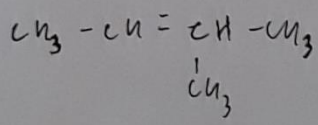 CH₃ - CH = CH - CH₃
CH₃